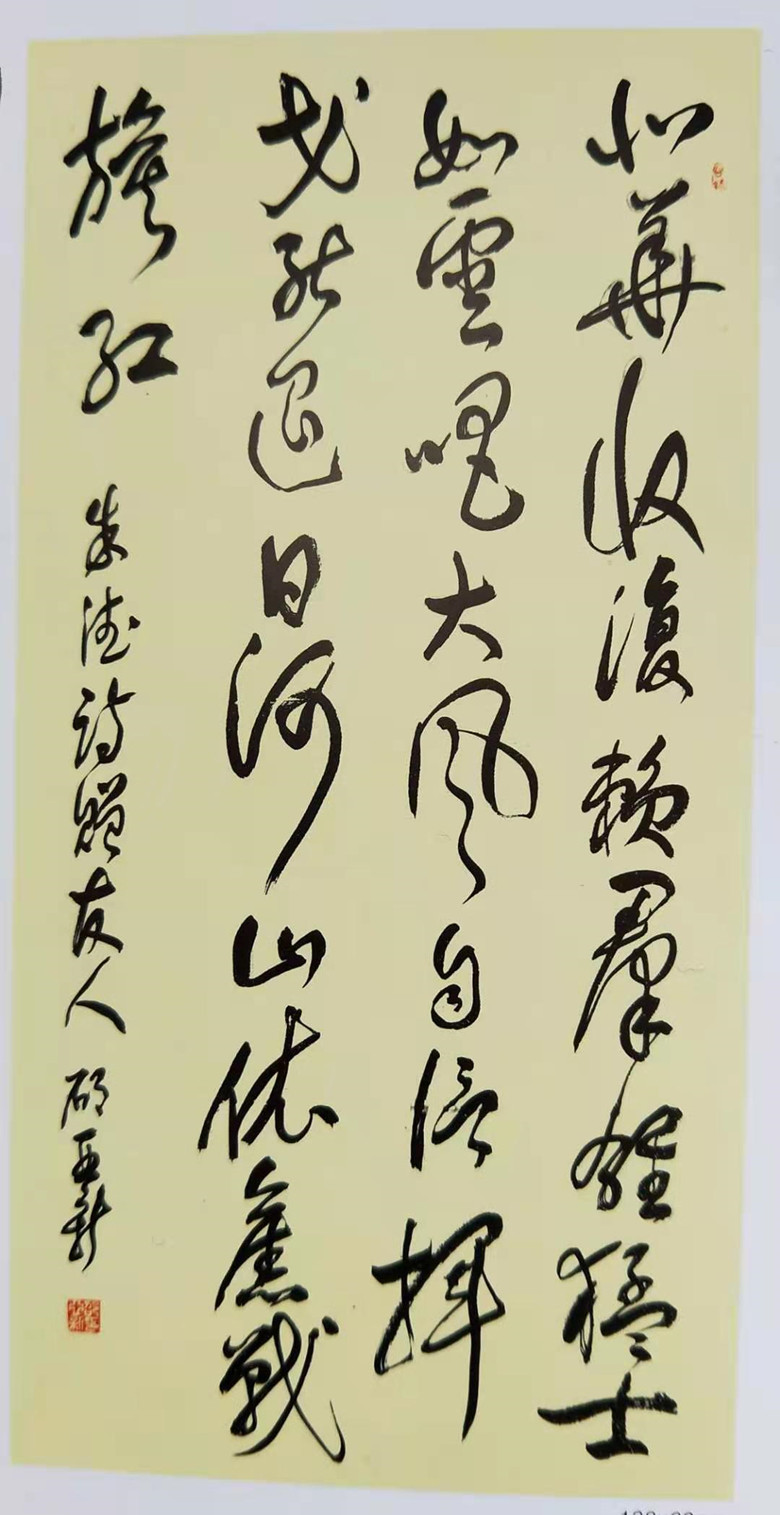 北華收復賴羣雄猛士
如雲唱大風自信揮
戈能退日河山依舊戰
旗紅 朱德詩贈友人